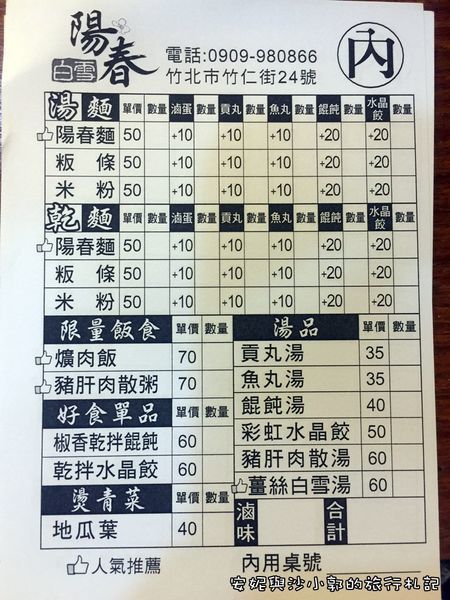 陽春
白雪
電話:0909-980866
竹北市竹仁街24號
內
湯麵 單價 數量 滷蛋 數量 貢丸 數量 魚丸 數量 餛飩 數量 水晶餃 數量
陽春麵 50 +10 +10 +10 +20 +20
粄條 50 +10 +10 +10 +20 +20
米粉 50 +10 +10 +10 +20 +20
乾麵 單價 數量 滷蛋 數量 貢丸 數量 魚丸 數量 餛飩 數量 水晶餃 數量
陽春麵 50 +10 +10 +10 +20 +20
粄條 50 +10 +10 +10 +20 +20
米粉 50 +10 +10 +10 +20 +20
限量飯食 單價 數量
爌肉飯 70
豬肝肉散粥 70
好食單品 單價 數量
椒香乾拌餛飩 60
乾拌水晶餃 60
燙青菜 單價 數量
地瓜葉 40
湯品 單價 數量
貢丸湯 35
魚丸湯 35
餛飩湯 40
彩虹水晶餃 50
豬肝肉散湯 60
薑絲白雪湯 60
滷味 合計
人氣推薦 內用桌號
安妮與沙小郭的旅行札記